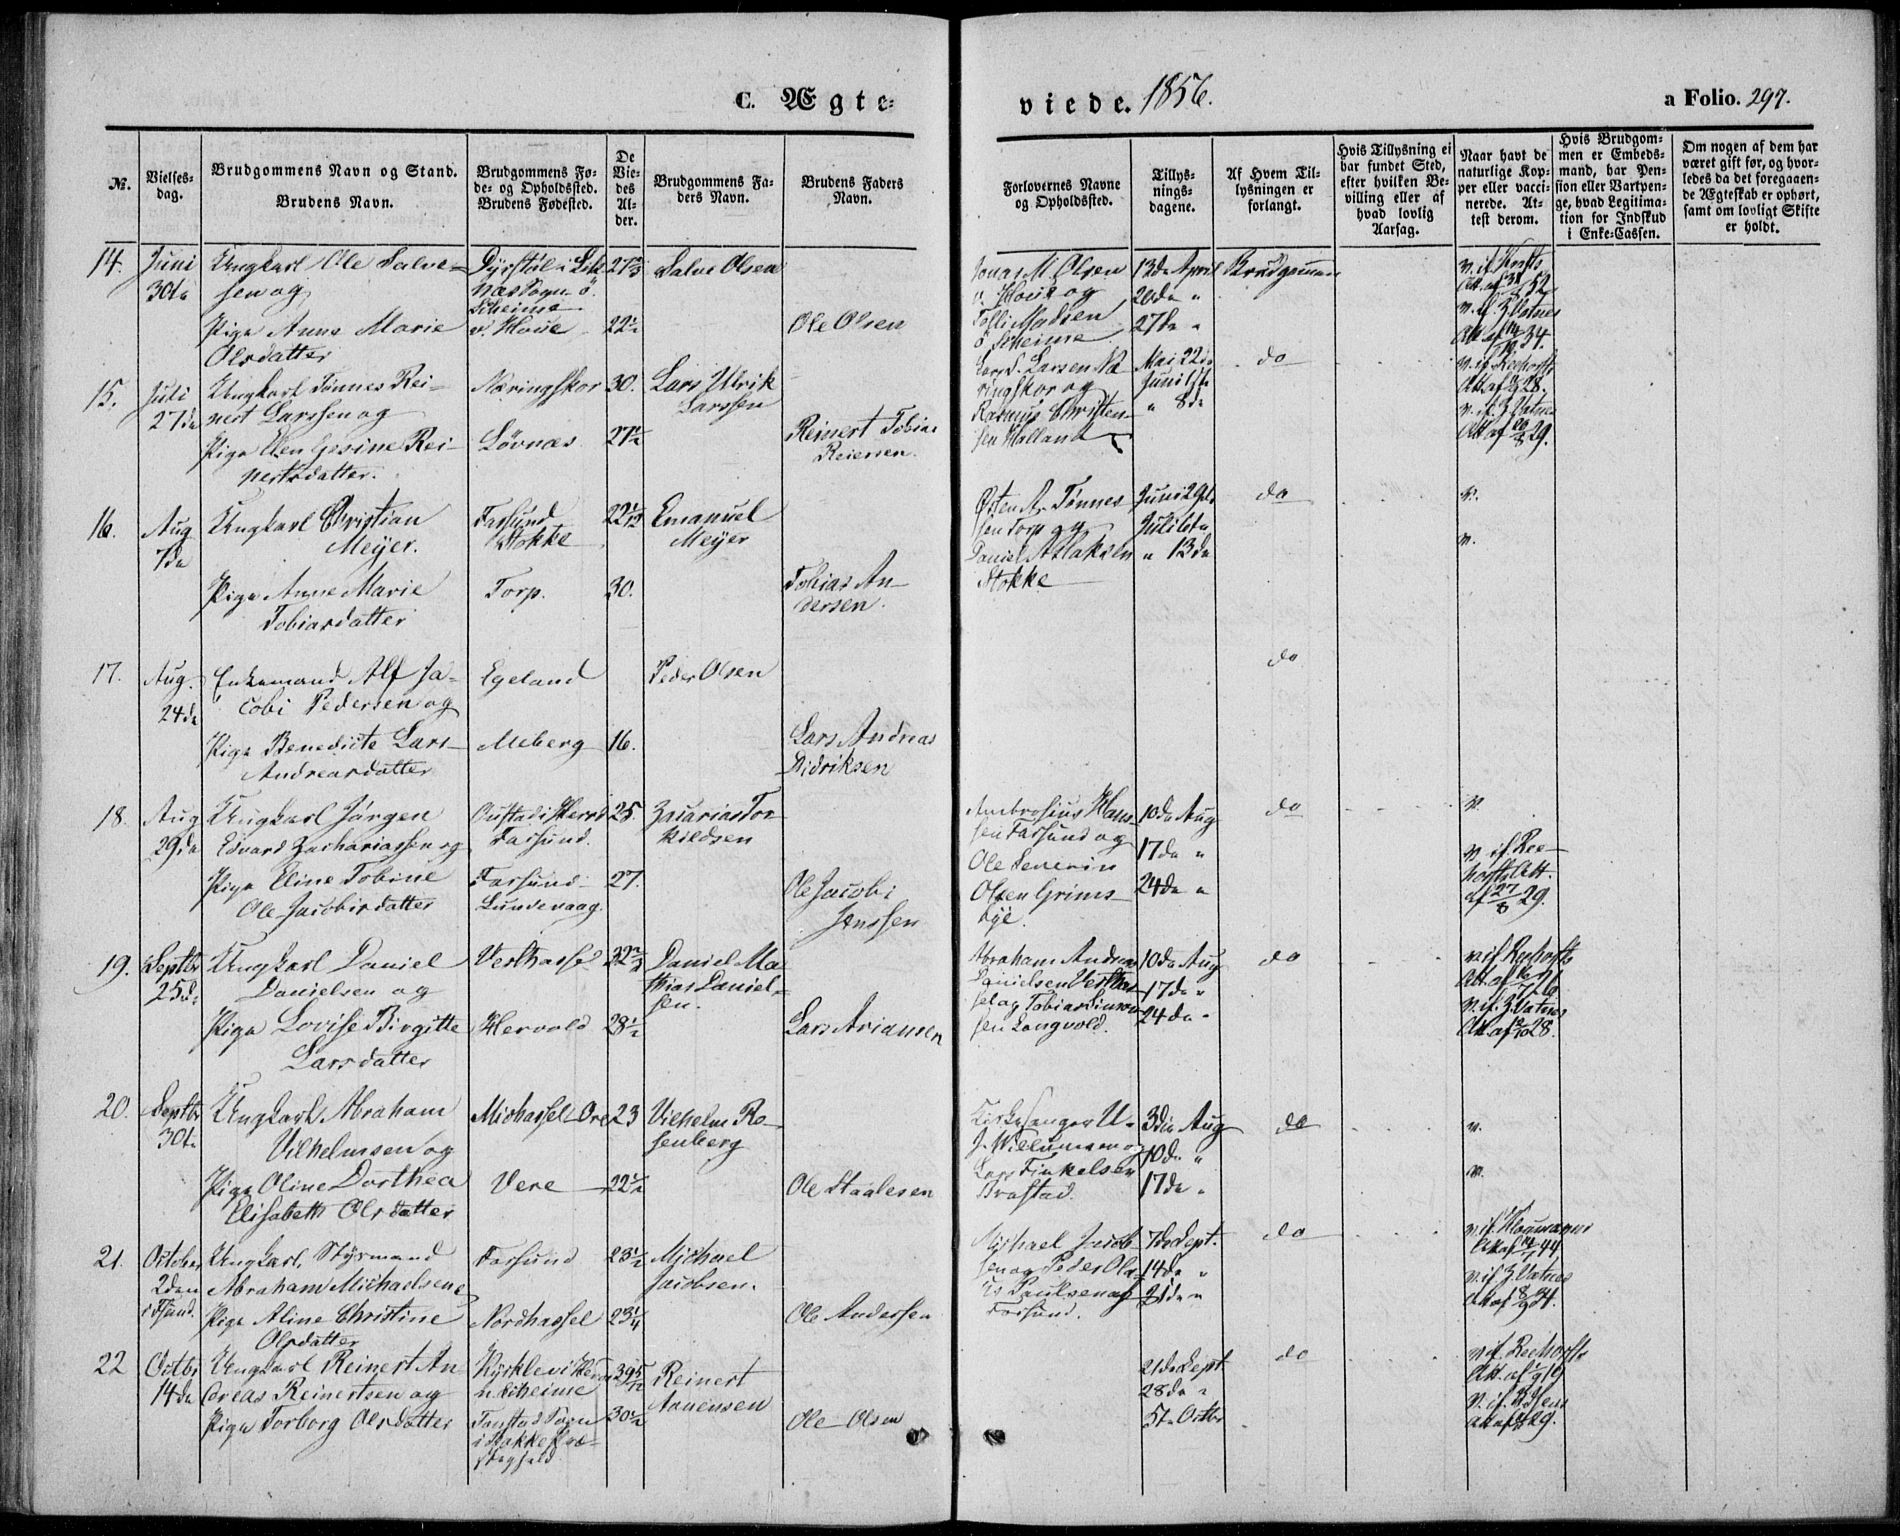 C. Ægte-
viede. 1856.
a Folio. 297.
№.
Vielses-
dag.
Brudgommens Navn og Stand.
Brudens Navn.
Brudgommens Fø-
de- og Opholdssted.
Brudens Fødested.
De
Vie-
des
Al-
der.
Brudgommens Fa-
ders Navn.
Brudens Faders
Navn.
Forlovernes Navne
og Opholdssted.
Tillys-
nings-
dagene.
Af Hvem Til-
lysningen er
forlangt.
Hvis Tillysning ei
har fundet Sted,
efter hvilken Be-
villing eller af
hvad lovlig
Aarsag.
Naar havt de
naturlige Kop-
per eller vacci-
nerede. At-
test derom.
Hvis Brudgom-
men er Embeds-
mand, har Pen-
sion eller Vartpen-
ge, hvad Legitima-
tion for Indskud
i Enke-Cassen.
Om nogen af dem har
været gift før, og hvor-
ledes da det foregaaen-
de Ægteskab er ophørt,
samt om lovligt Skifte
er holdt.
14.
Juni
30te
Ungkarl Ole Salve-
sen og
Pige Anne Marie
Olsdatter
v. Haue
22½
Salve Olsen
Ole Olsen
Jonas M. Olsen
v. Haue og
Tolli Madsen
ö Scheime
13de April
20de "
27de "
Brudgommen
15.
Juli
27de
Ungkarl Tønnes Rei-
nert Larssen og
Pige Elen Gesine Rei-
nertsdatter.
Næringskor
Løvnæs
30.
27½
Lars Ulrik
Larssen
Reinert Tobias
Reiersen.
Lars L. Larsen Næ
ringskor og
Rasmus Christen-
sen Halland
Mai 22de
Juni 1ste
" 8de
do
16.
Aug
7de
Ungkarl Christian
Meyer.
Pige Anne Marie
Tobiasdatter
Farsund
Stokke
Torp.
30.
Emanuel
Meyer
Tobias An-
dersen.
Østen A. Tønnes
sen Torp og
Daniel Aslaksen
Stokke
Juni 29de
" 13de
do
v.
v.
17.
Aug.
24de
Enkemand Alf Ja-
cobi Pedersen og
Pige Benedicte Lars
Andreasdatter
Egeland
Meberg
16.
Peder Olsen
Lars Andreas
Didriksen
do
18.
Aug
29de
Ungkarl Jørgen
Edvard Zachariassen og
Pige Eline Tobine
Ole Jacobisdatter
Farsund.
Farsund
Lundevaag.
25.
27.
Zacarias Tor-
kildsen
Ole Jacobi
Jenssen
Ambrosius Hans-
sen Farsund og
Ole Severin
Olsen Grims-
bye.
10de Aug
17de "
24de "
do
v.
v. if. Ree-
horsts Att.
af 27/8 29.
19.
Septbr
25de
Ungkarl Daniel
Danielsen og
Pige Lovise Birgitte
Larsdatter
Vesthassel
Hervold
28½
Daniel Ma
thias Daniel-
sen.
Lars Ariansen
Abraham Andreas
Danielsen Vesthas-
sel og Tobias Simon-
sen Langvold.
10de Aug
17de "
24de "
do
20.
Septbr
30te
Ungkarl Abraham
Vilhelmsen og
Pige Oline Dorthea
Elisabeth Olsdatter
Midhassel Ore
Vere
23
22½
Vilhelm Ro-
senberg
Ole Staalesen
Kirkesanger U.
J. Willumsen og
Lars Finkelsen
Brastad.
3die Aug
10de "
17de "
do
v.
v.
21.
October
2den
i Fsund.
Ungkarl, Styrmand
Abraham Michaelsen
Pige Aline Christine
Olsdatter
Farsund
Nordhassel
23½
23¼
Michael
Jacobsen.
Ole Andersen
Michael Jacob-
sen og Peder Ola-
us Paulsen af
Farsund.
7de Sept.
14de "
21de "
do
22
Octbr
14de
Ungkarl Reinert An
dreas Reinertsen og
Pige Torborg Olsdatter
30½
Reinert
Aanensen
Ole Olsen
21de Sept
28de "
5te Octbr
do